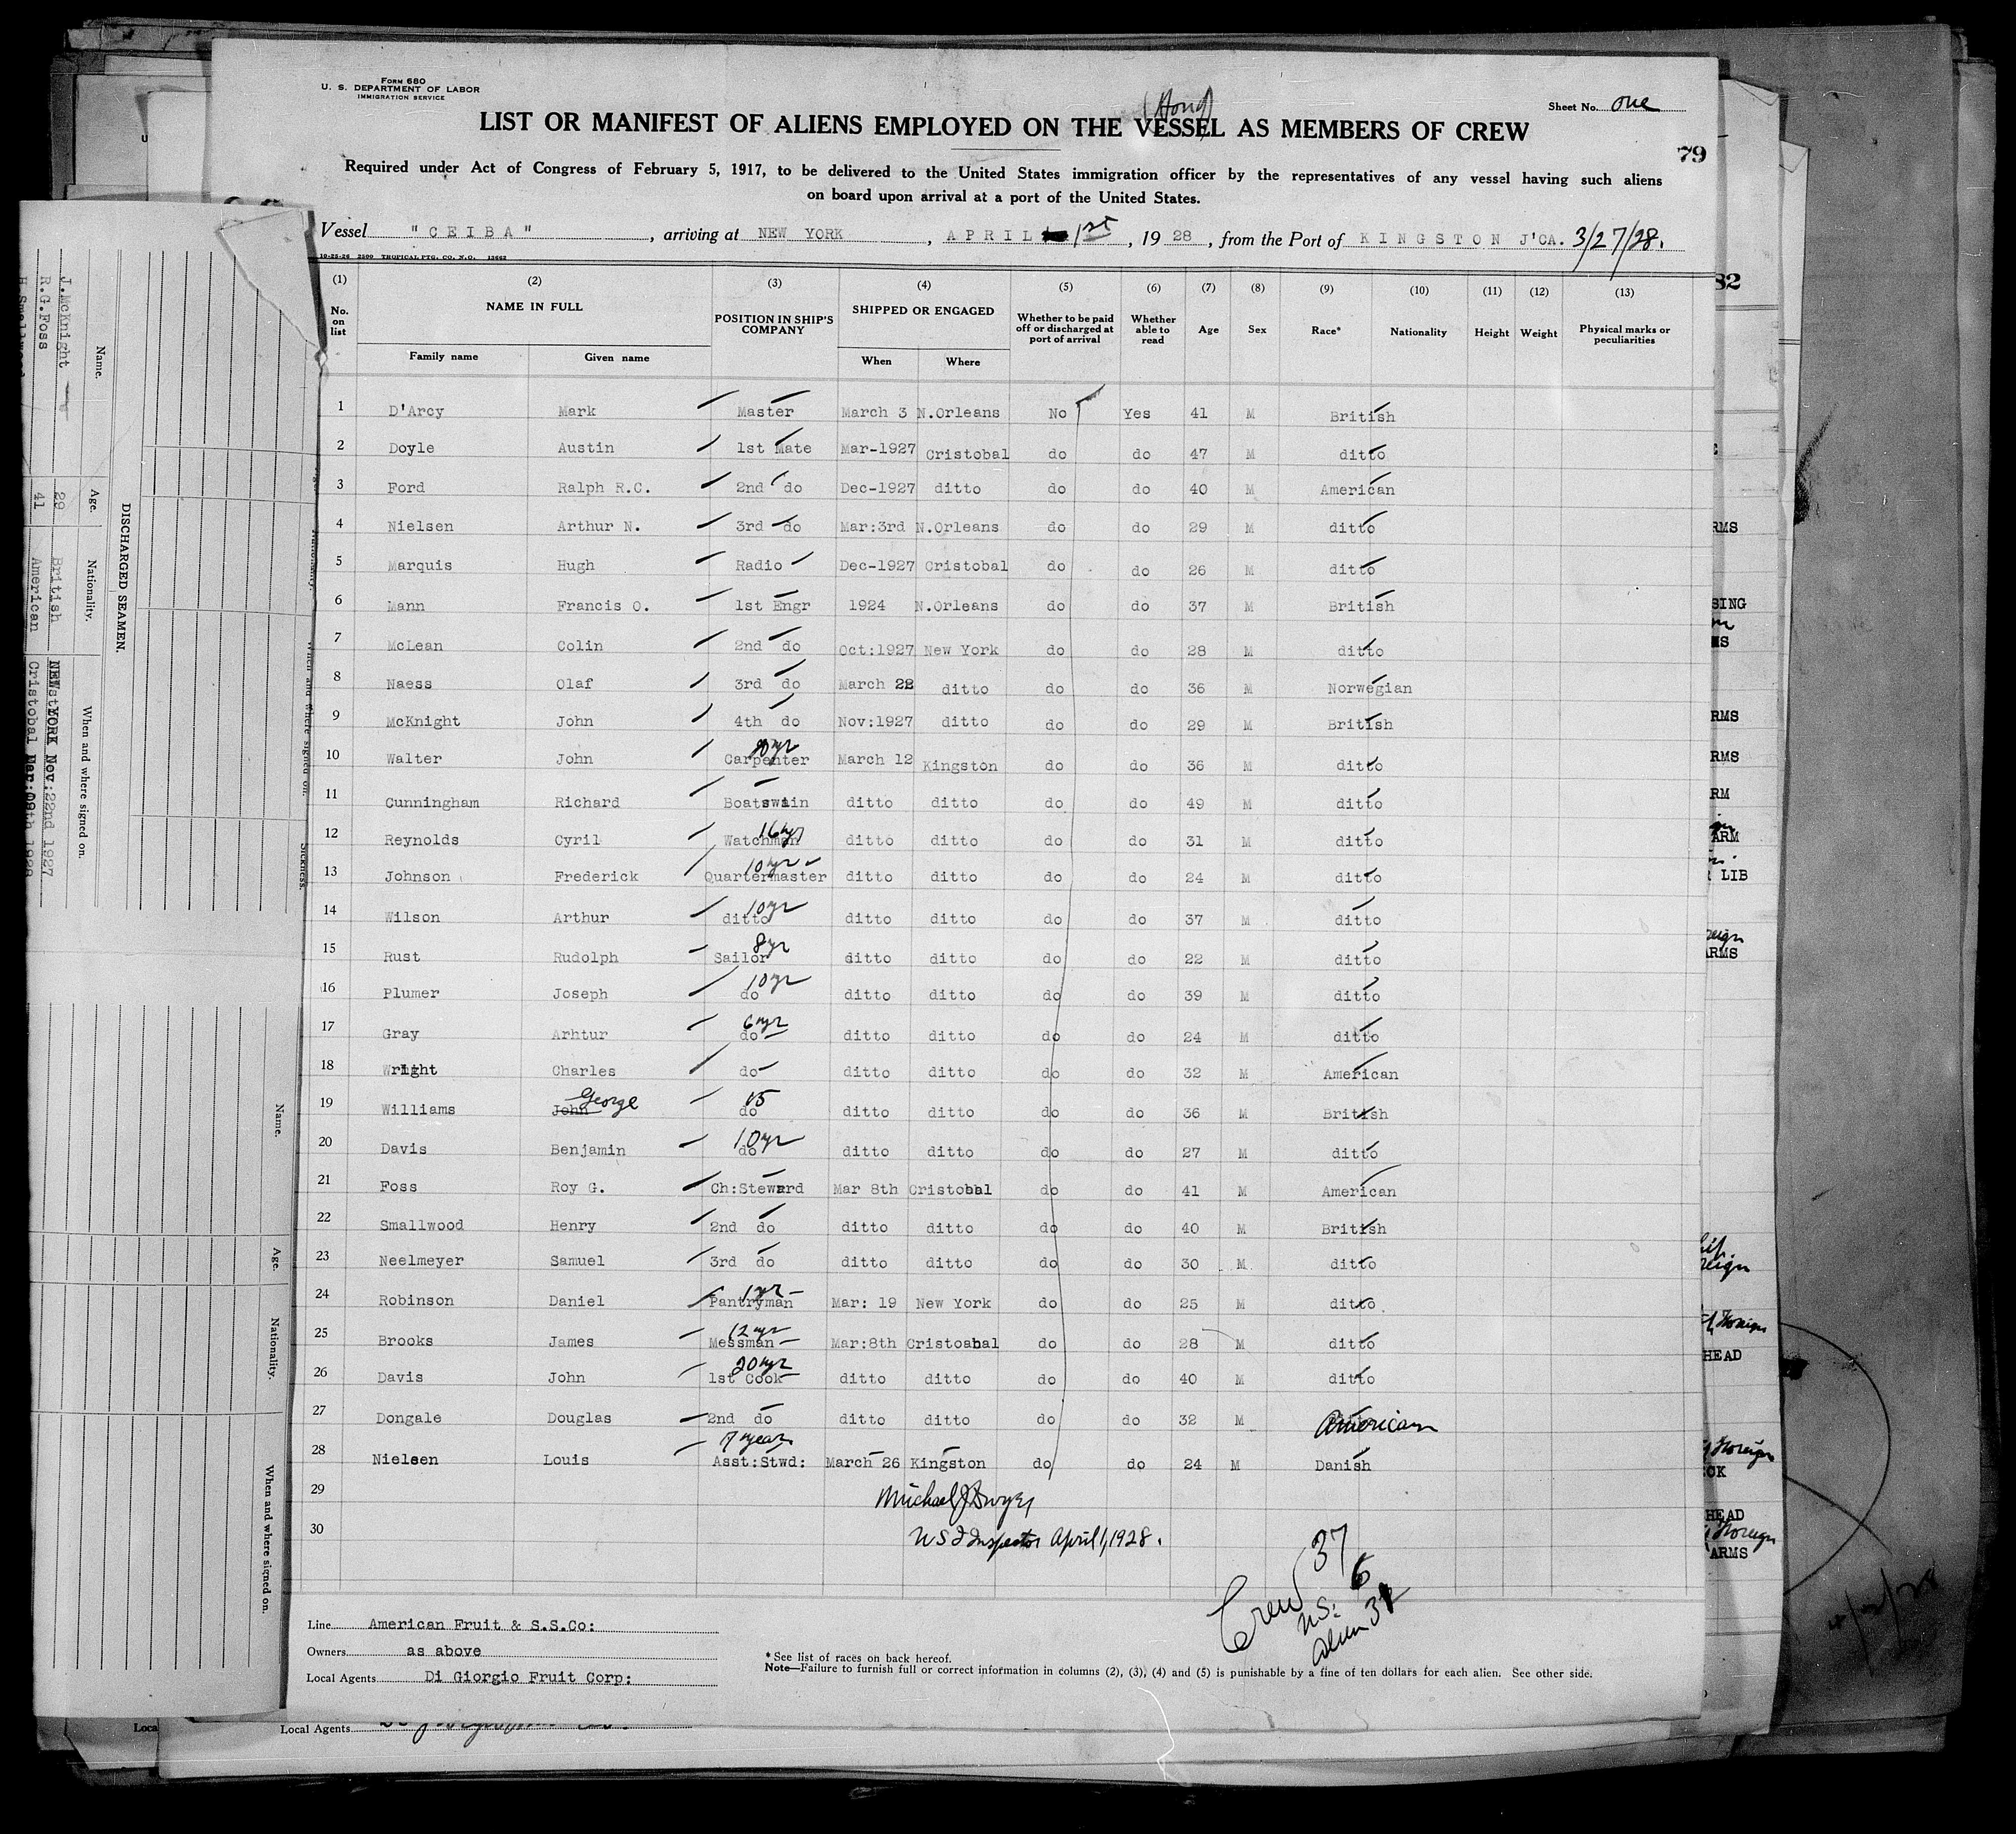 Form 680
U. S. DEPARTMENT OF LABOR
IMMIGRATION SERVICE
Sheet No. one
(Hond)
LIST OR MANIFEST OF ALIENS EMPLOYED ON THE VESSEL AS MEMBERS OF CREW
79
Required under Act of Congress of February 5, 1917, to be delivered to the United States immigration officer by the representatives of any vessel having such aliens
on board upon arrival at a port of the United States.
Vessel "CEIBA", arriving at NEW YORK, APRIL 1st, 1928, from the Port of KINGSTON J'CA. 3/27/28.
10-25-26 2500 TROPICAL PTG. CO. N.O. 13662
(1) (2) (3) (4) (5) (6) (7) (8) (9) (10) (11) (12) (13)
No. on list NAME IN FULL POSITION IN SHIP'S COMPANY SHIPPED OR ENGAGED Whether to be paid off or discharged at port of arrival Whether able to read Age Sex Race* Nationality Height Weight Physical marks or peculiarities
Family name Given name When Where
1 D'Arcy Mark Master March 3 N.Orleans No Yes 41 M British
2 Doyle Austin 1st Mate Mar-1927 Cristobal do do 47 M ditto
3 Ford Ralph R.C. 2nd do Dec-1927 ditto do do 40 M American
4 Nielsen Arthur N. 3rd do Mar:3rd N.Orleans do do 29 M ditto
5 Marquis Hugh Radio Dec-1927 Cristobal do do 26 M ditto
6 Mann Francis O. 1st Engr 1924 N.Orleans do do 37 M British
7 McLean Colin 2nd do Oct:1927 New York do do 28 M ditto
8 Naess Olaf 3rd do March 22 ditto do do 36 M Norwegian
9 McKnight John 4th do Nov:1927 ditto do do 29 M British
10 Walter John Carpenter March 12 Kingston do do 36 M ditto
11 Cunningham Richard Boatswain ditto ditto do do 49 M ditto
12 Reynolds Cyril 16yr Watchman ditto ditto do do 31 M ditto
13 Johnson Frederick 10yr Quartermaster ditto ditto do do 24 M ditto
14 Wilson Arthur 10yr ditto ditto ditto do do 37 M ditto
15 Rust Rudolph 8yr Sailor ditto ditto do do 22 M ditto
16 Plumer Joseph 10yr do ditto ditto do do 39 M ditto
17 Gray Arhtur 6yr do ditto ditto do do 24 M ditto
18 Wright Charles do ditto ditto do do 32 M American
19 Williams John George 15 do ditto ditto do do 36 M British
20 Davis Benjamin 10yr do ditto ditto do do 27 M ditto
21 Foss Roy G. Ch:Steward Mar 8th Cristobal do do 41 M American
22 Smallwood Henry 2nd do ditto ditto do do 40 M British
23 Neelmeyer Samuel 3rd do ditto ditto do do 30 M ditto
24 Robinson Daniel 1yr Pantryman Mar: 19 New York do do 25 M ditto
25 Brooks James 12yr Messman Mar:8th Cristobal do do 28 M ditto
26 Davis John 20yr 1st Cook ditto ditto do do 40 M ditto
27 Dongale Douglas 2nd do ditto ditto do do 32 M American
28 Nielsen Louis 7 years Asst:Stwd: March 26 Kingston do do 24 M Danish
29 Michael J Dwyer
30 U S I Inspector April 1, 1928.
Crew 37
U.S. 6
Alien 31
Line American Fruit & S.S.Co:
Owners as above
Local Agents Di Giorgio Fruit Corp:
* See list of races on back hereof.
Note—Failure to furnish full or correct information in columns (2), (3), (4) and (5) is punishable by a fine of ten dollars for each alien. See other side.
Local Agents
DISCHARGED SEAMEN.
Name. Age. Nationality. When and where signed on.
J.McKnight 29 British NEW YORK Nov:22nd 1927
R.G.Foss 41 American Cristobal Mar:08th 1928
Name. Age. Nationality. When and where signed on.
Sickness.
82
RMS
SING
RMS
RMS
RM
ARM
LIB
ARMS
HEAD
HEAD
ARMS